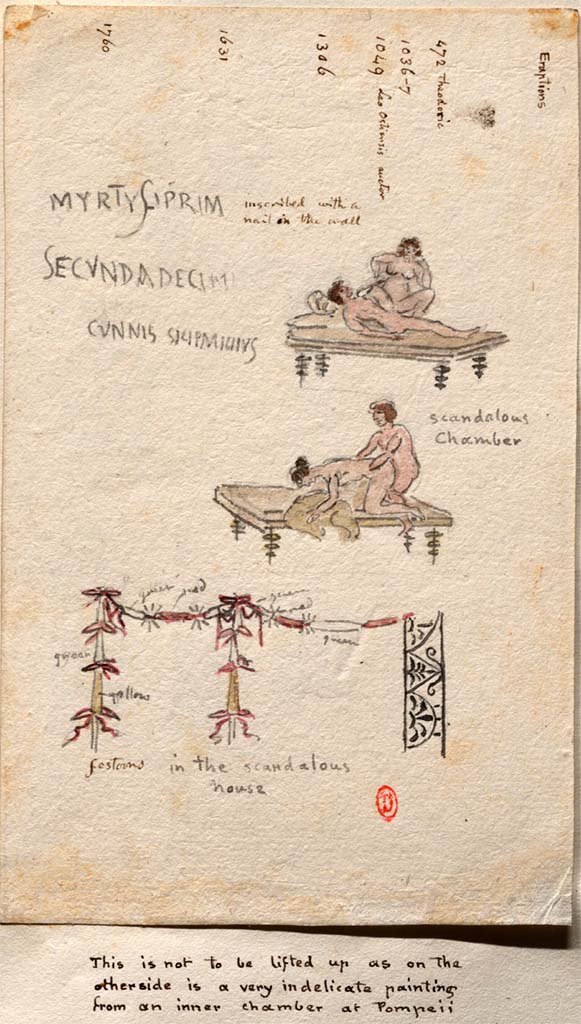 Eruptions
472 Theodoric
1036-7
1049 Leo Ostiensis auctor
1306
1631
1760
MYRTYSIPRIM
inscribed with a
nail on the wall
SECVNDADECIM
CVNNIS
scandalous
Chamber
green red
green
red
green
green
yellow
festoons in the scandalous
house
This is not to be lifted up as on the
otherside is a very indelicate painting
from an inner chamber at Pompeii